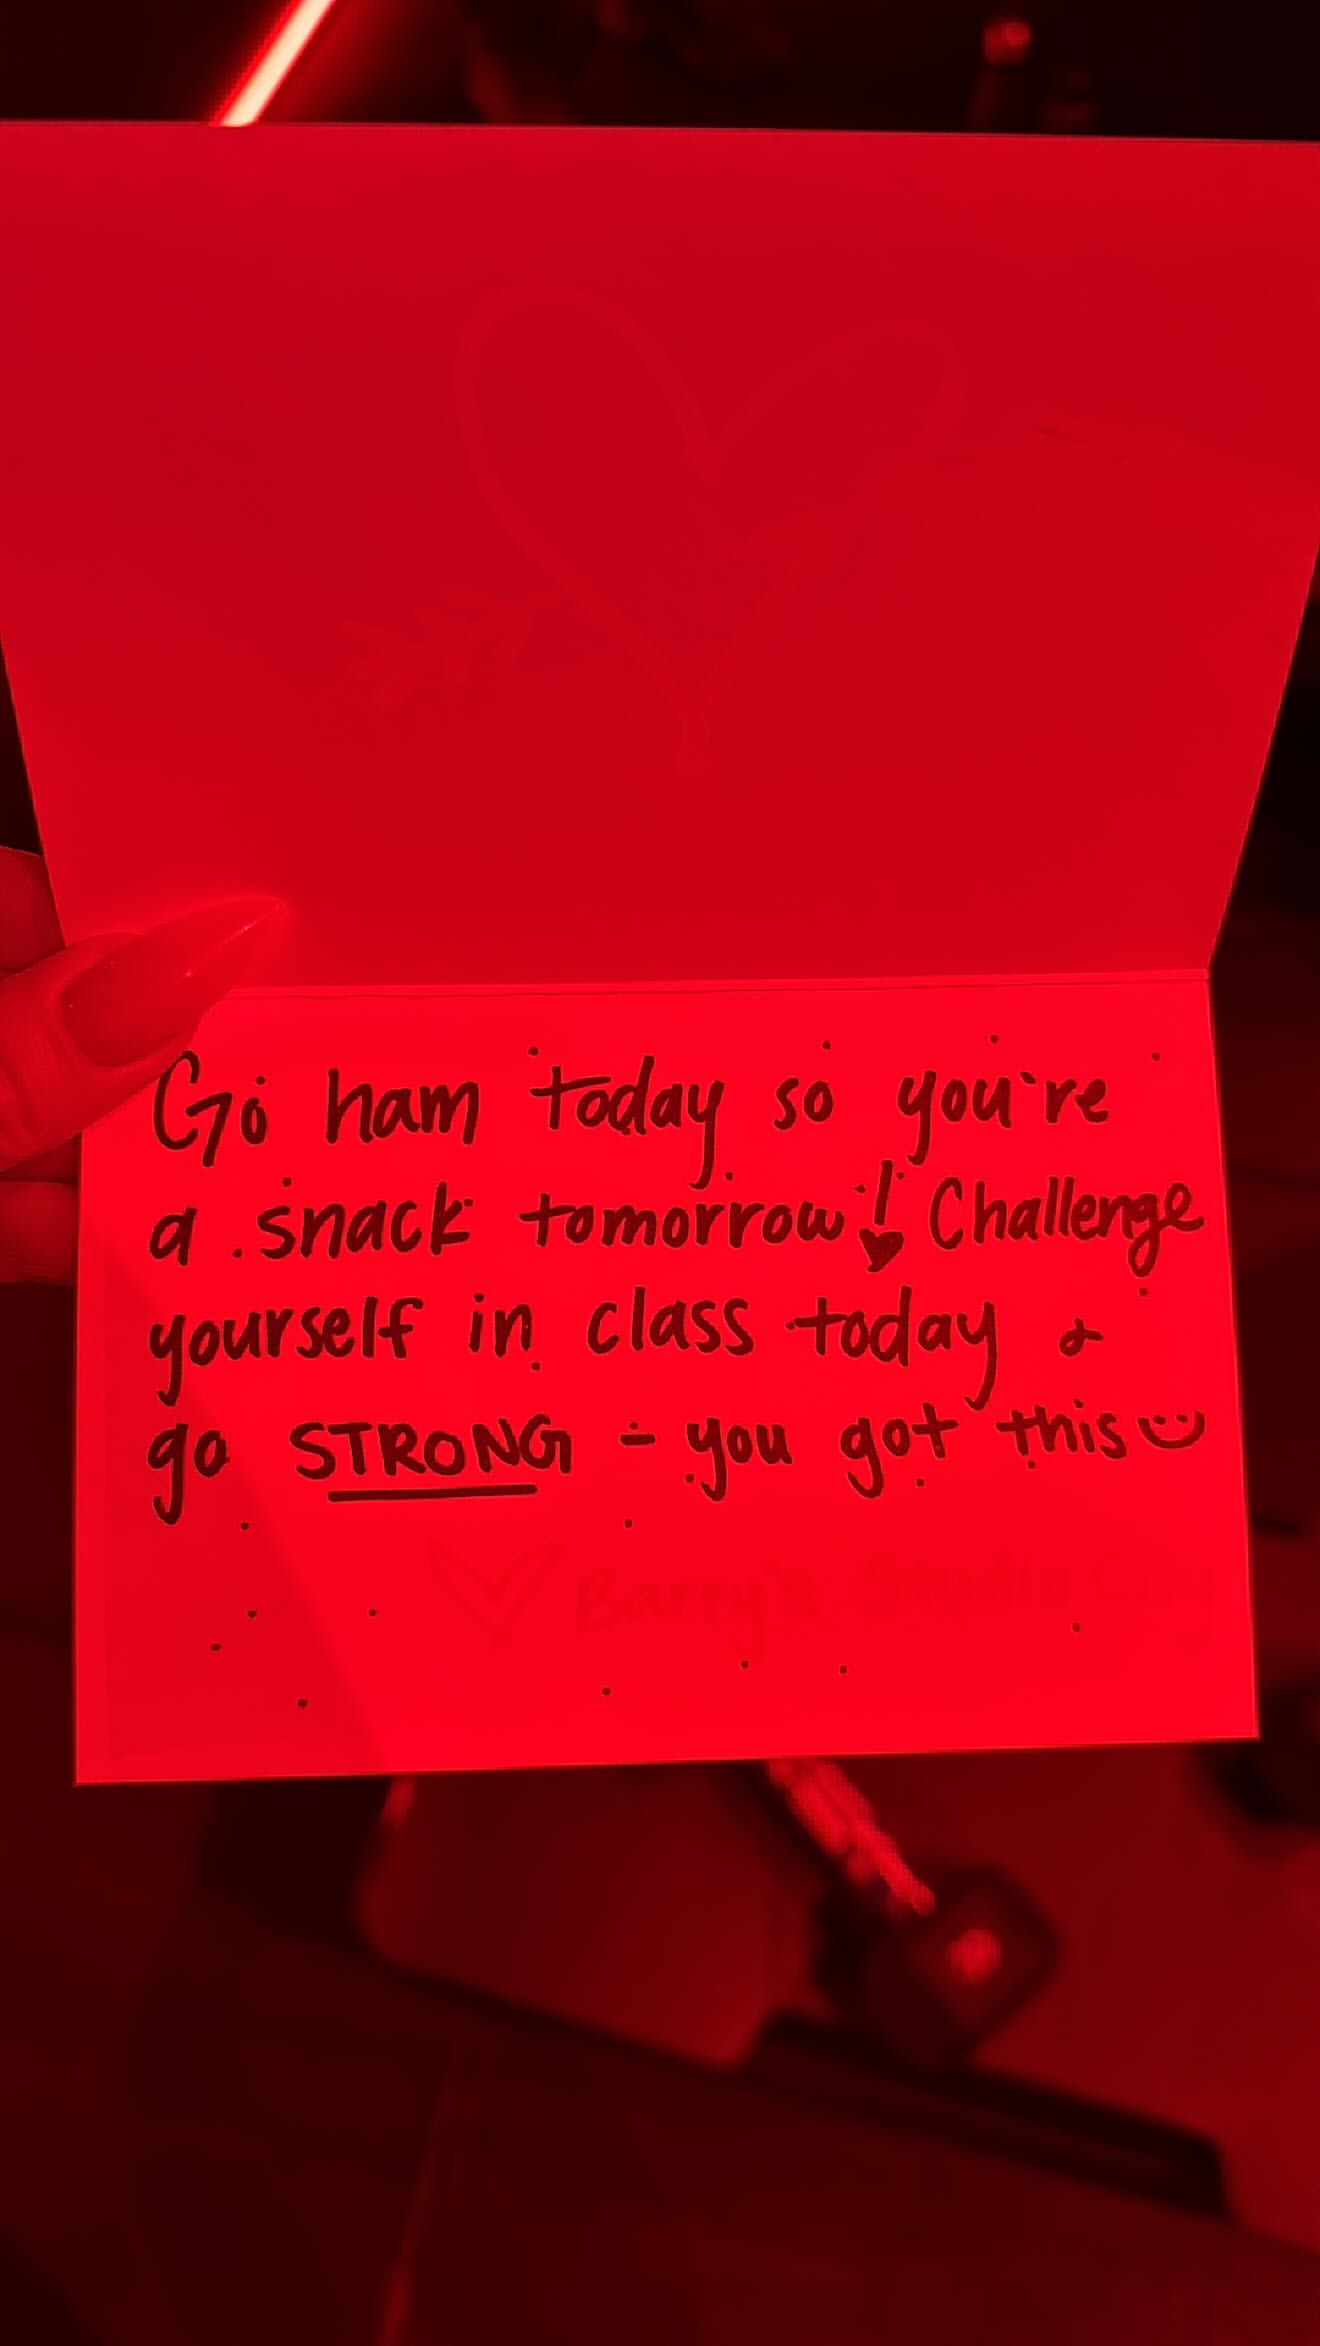 Go ham today so you're
a snack tomorrow! Challenge
yourself in class today &
go STRONG - you got this
Barry's Studio City